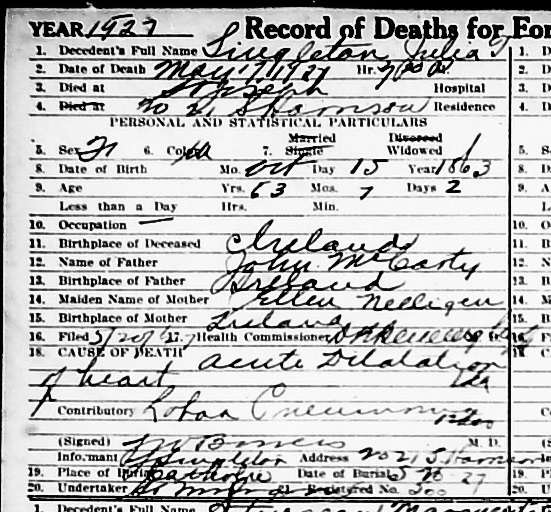 YEAR 1927 Record of Deaths for For
1. Decedent's Full Name Singleton Julia
2. Date of Death May 17, 1927 Hr.
3. Died at St Joseph Hospital
4. Died at No 21 S Harrison Residence
PERSONAL AND STATISTICAL PARTICULARS
Married Divorced
5. Sex 6. Color 7. Single Widowed 1
8. Date of Birth Mo. Oct Day 15 Year 1863
9. Age Yrs. 63 Mos. 7 Days 2
Less than a Day Hrs. Min.
10. Occupation —
11. Birthplace of Deceased Ireland
12. Name of Father John McCarty
13. Birthplace of Father Ireland
14. Maiden Name of Mother Ellen Nelligen
15. Birthplace of Mother Ireland
16. Filed 5/20/27 17. Health Commissioner
18. CAUSE OF DEATH Acute Dilatation
of heart
Contributory Lobar Pneumonia
(Signed) M. D.
Informant Singleton Address No 21 S Harrison
19. Place of Burial Catholic Date of Burial 5 20 27
20. Undertaker 21. Registered No. 200
1. Decedent's Full Name